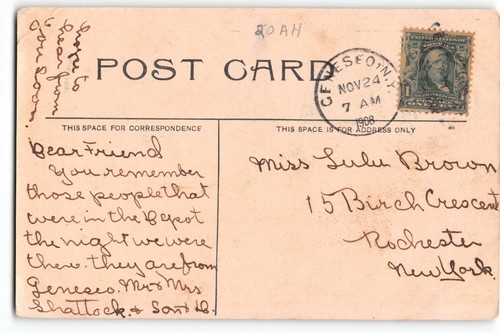 20AH
Hope to
hear from
you soon.
POST CARD
GENESEO, N.Y.
NOV 24
7 AM
1908
1
THIS SPACE FOR CORRESPONDENCE
THIS SPACE IS FOR ADDRESS ONLY
Dear Friend
You remember
those people that
were in the Depot
the night we were
there. they are from
Geneseo. Mr & Mrs
Shattock. &
Miss Lulu Brown
15 Birch Crescent
Rochester
New York.